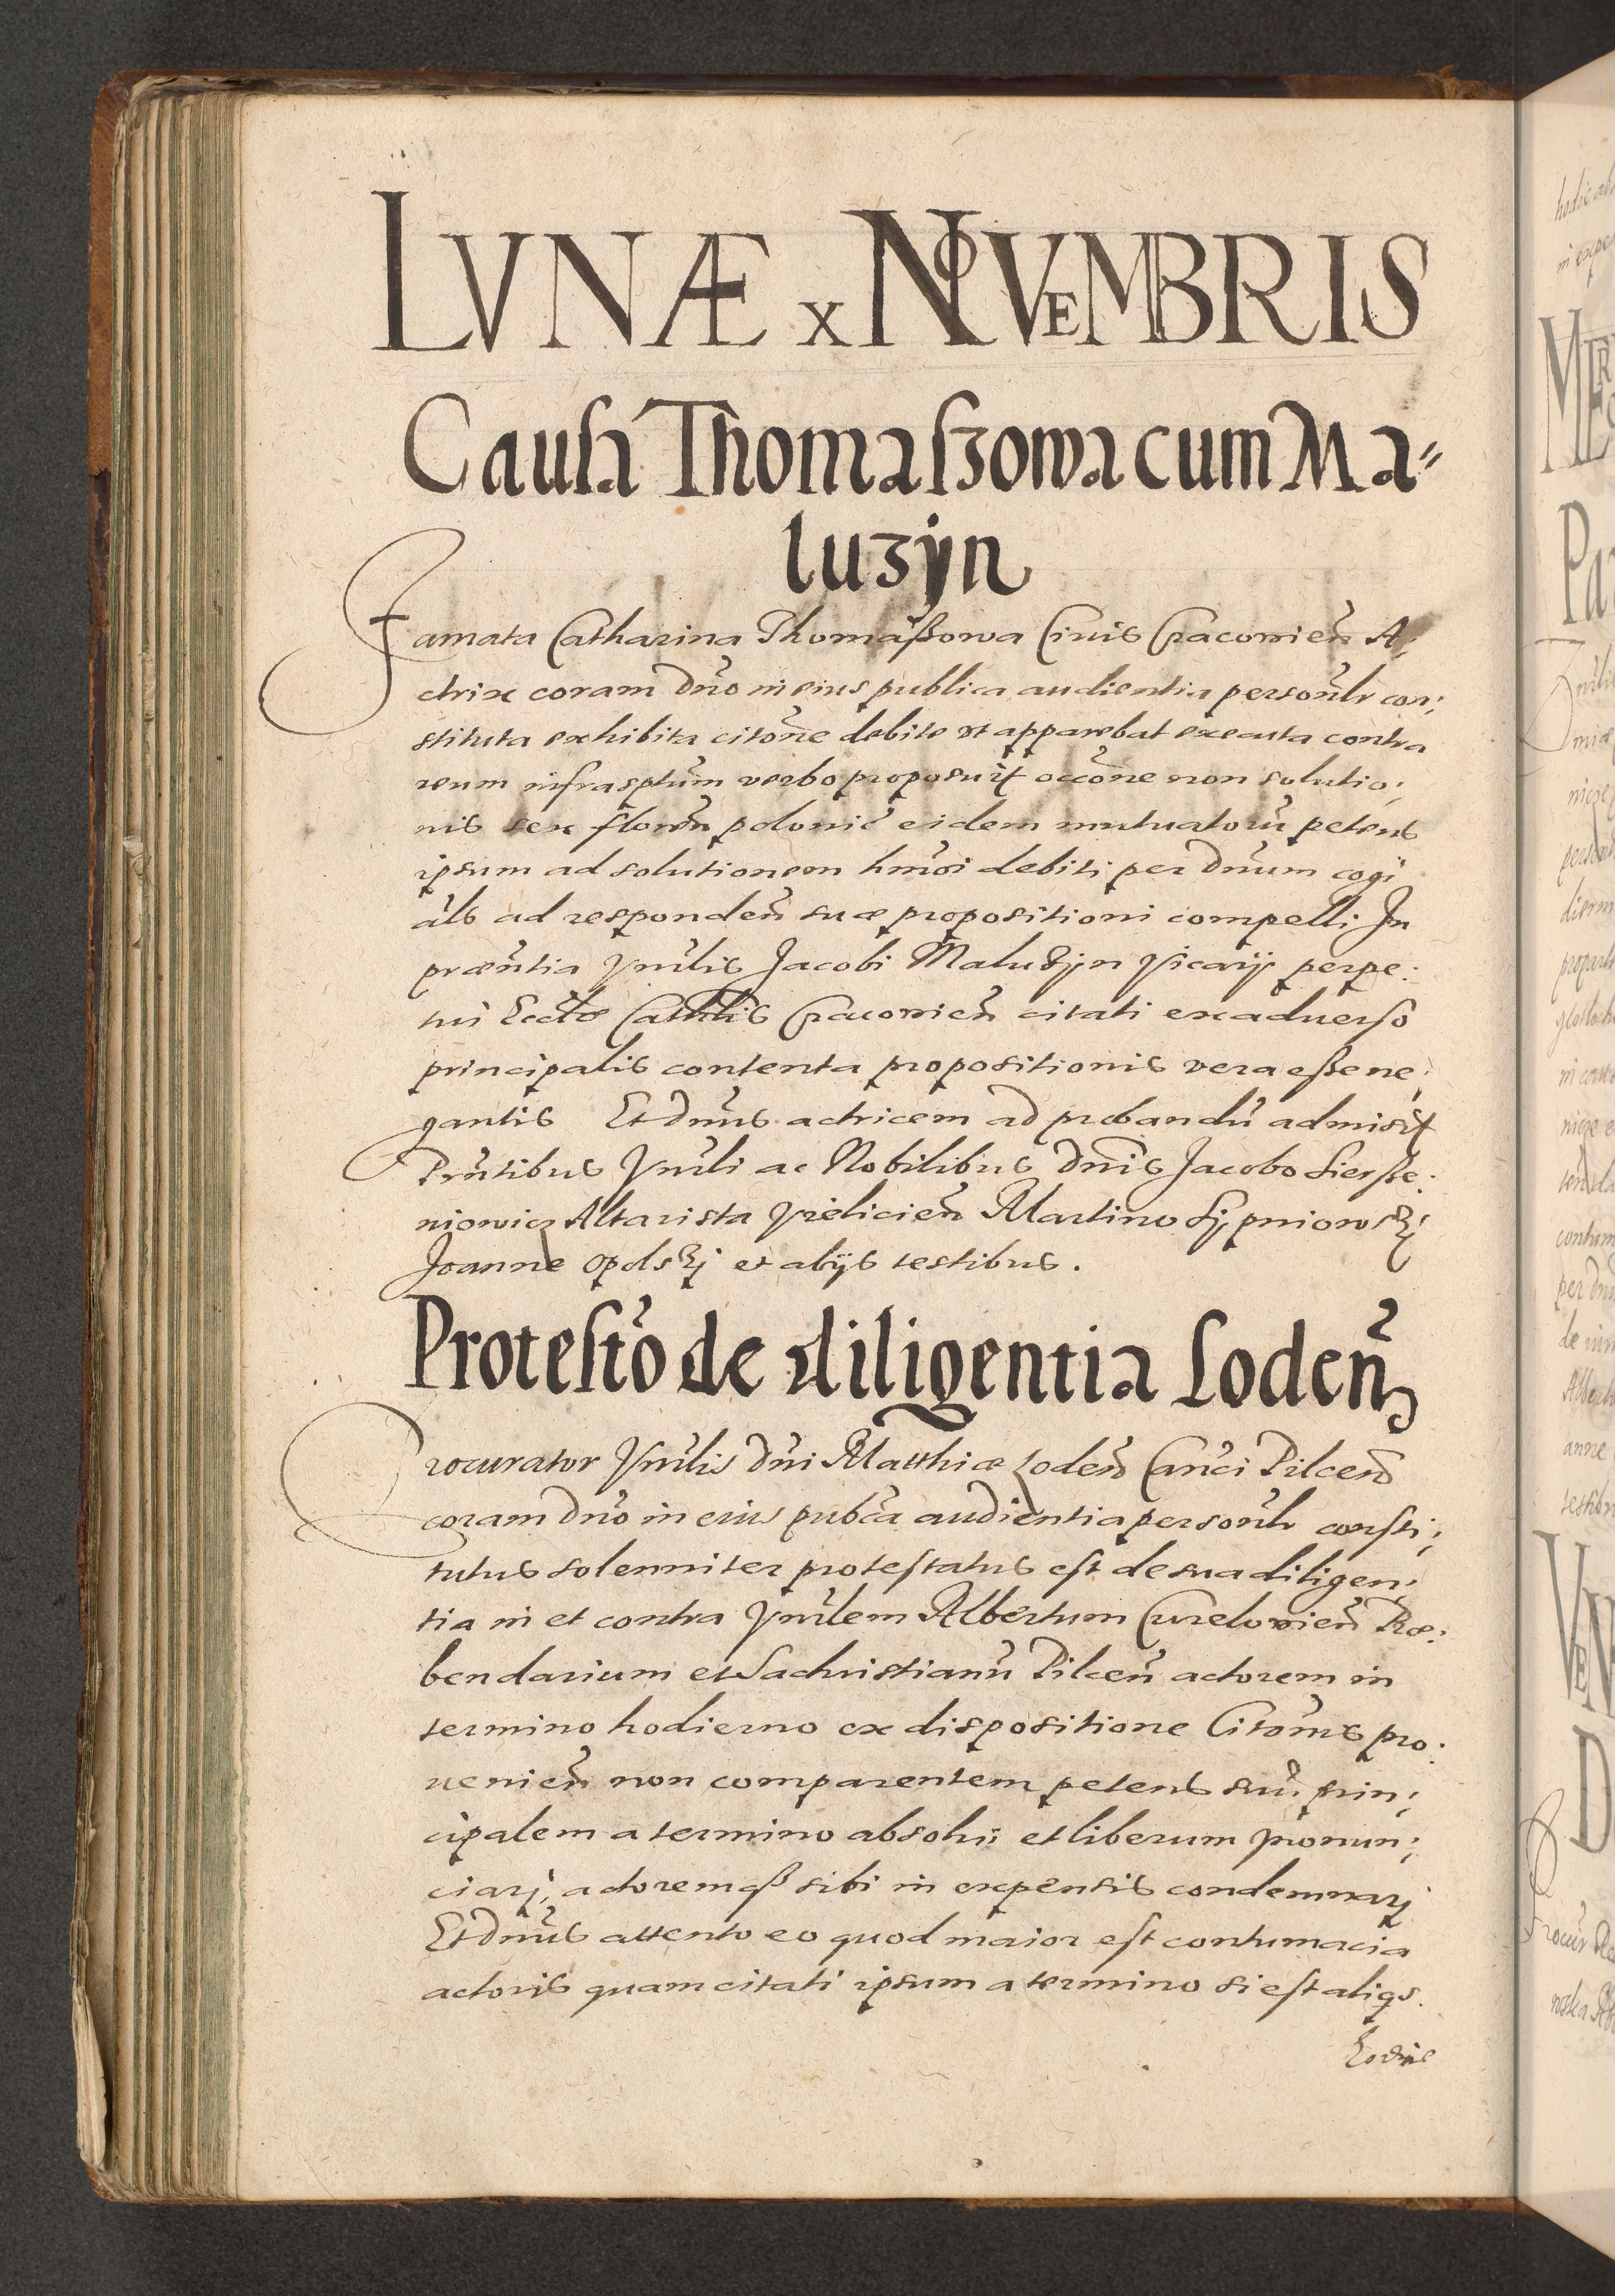 LVNÆ x NOVEMBRIS
Causa Thomaszowa cum Ma⸗
luzÿn
Famata Catharina Thomaßowa Civis Cracovień A,
ctrix coram dño in eius publica audientia persońlr con,
stituta exhibita citońe debite ut apparebat executa contra
reum infrasptum verbo proposuit occońe non solutio,
nis sex floreń polonic̃ eidem mutuatorũ petens
ipsum ad solutionem hmõi debiti per Dnum cogi
als ad responden̄ suæ propositioni compelli In
præntia Vnlis Jacobi Maluzÿn Vicarij perpe:
tui Eccłæ Cathlis Cracovień citati ex adverso
principalis contenta propositionis vera esse ne,
gantis Et Dnus actricem ad probandũ admisit
Pntibus Vnli ac Nobilibus Dnis Jacobo
niowicz Altarista Vielicień Martino
Joanne Opolskj et alijs testibus.
Protestõ de diligentia Lodeń
Procurator Vnlis Dni Matthiæ Lodeń Canci Pilceń
coram Dño in eius pubca audientia persońlr consti,
tutus solenniter protestatus est de sua diligen,
tia in et contra Vnlem Albertum Curelovień Præ:
bendarium et Sachristianũ Pilceń actorem in
termino hodierno ex dispositione Citońis pro:
venień non comparentem petens suũ prin,
cipalem a termino absolvi et liberum pronun,
ciarj, actoremqß sibi in expensis condemnarj
Et Dnus attento eo quod maior est contumacia
actoris quam citati ipsum a termino si est aliqs.
hodie